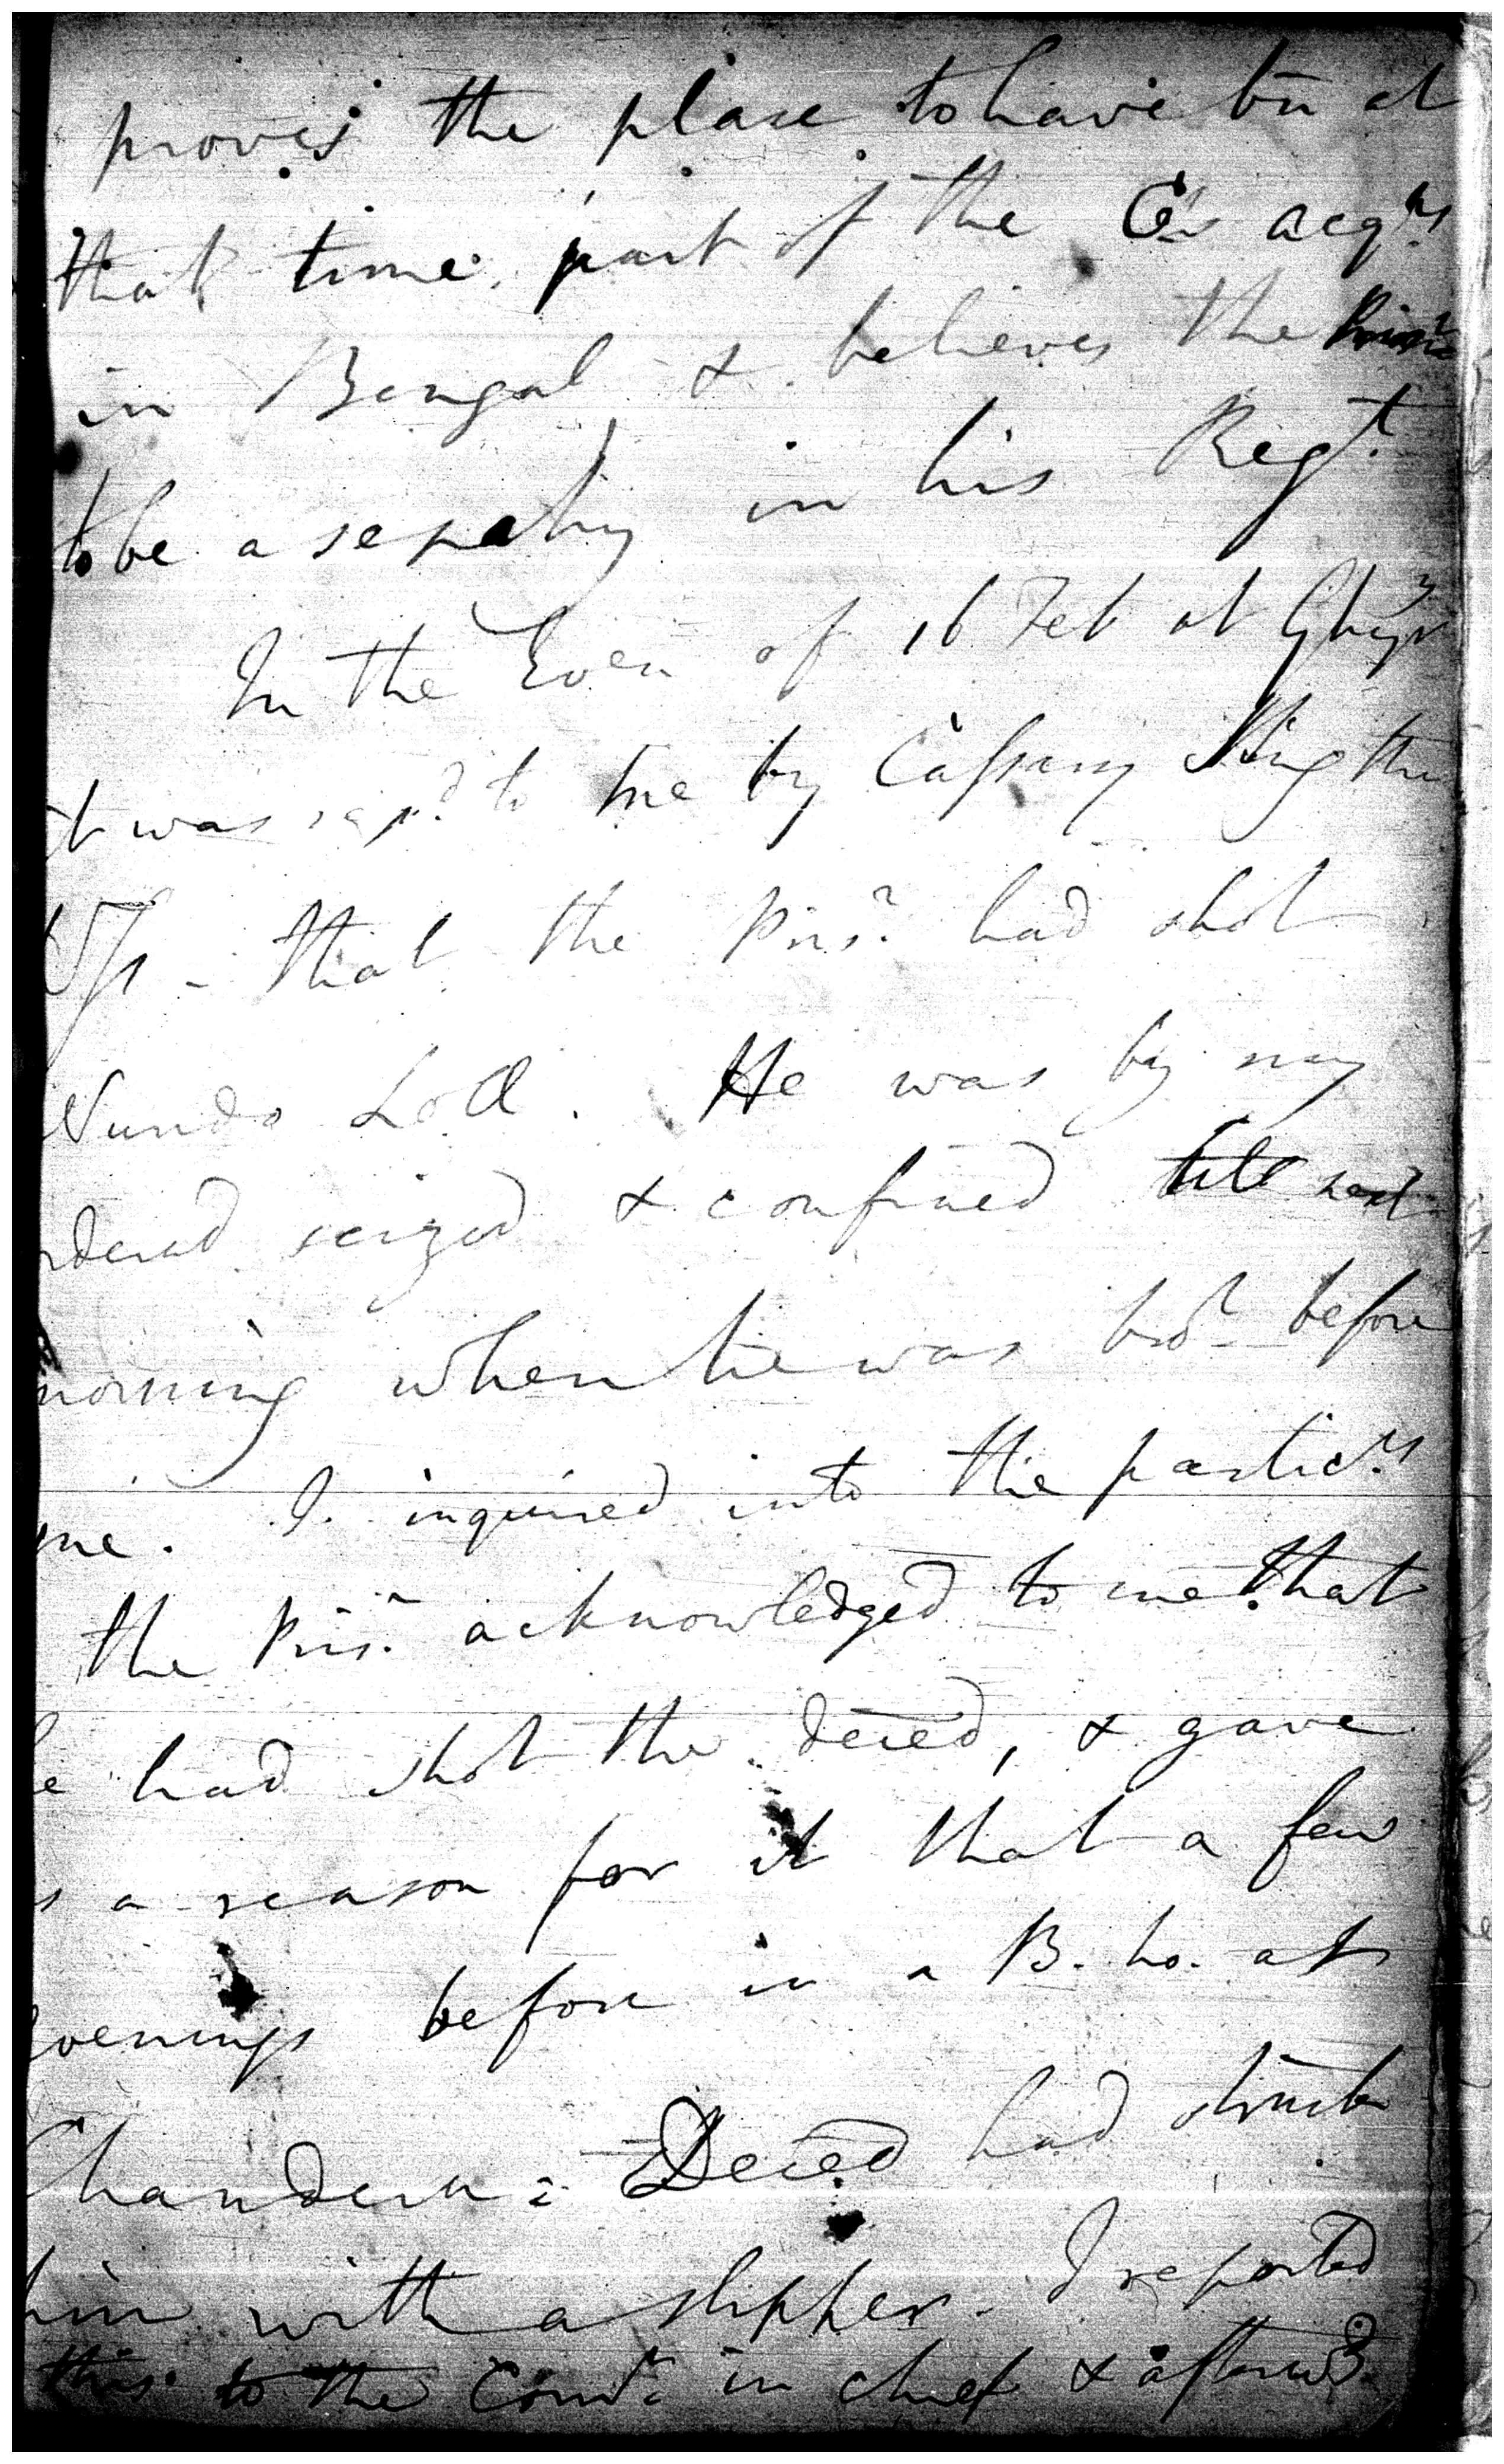 proves the place to have bn at
that time part of the Co's acqns
in Bengal & believes the Prisr
to be a sepahy in his Regt.
In the Even of 16 Feb at
it was repd to me by Cassany Sing the
that the Prisr. had shot
Nundo Loll. He was by my
ordered seized & confined till next
morning when he was brot before
me. I inquired into the particrs
the Prisr. acknowledged to me that
he had shot the deced, & gave
as a reason for it that a few
evenings before in a B. ho. at
Chandern: Deced had struck
him with a slipper. I reported
this to the Comr in chief & afterwds